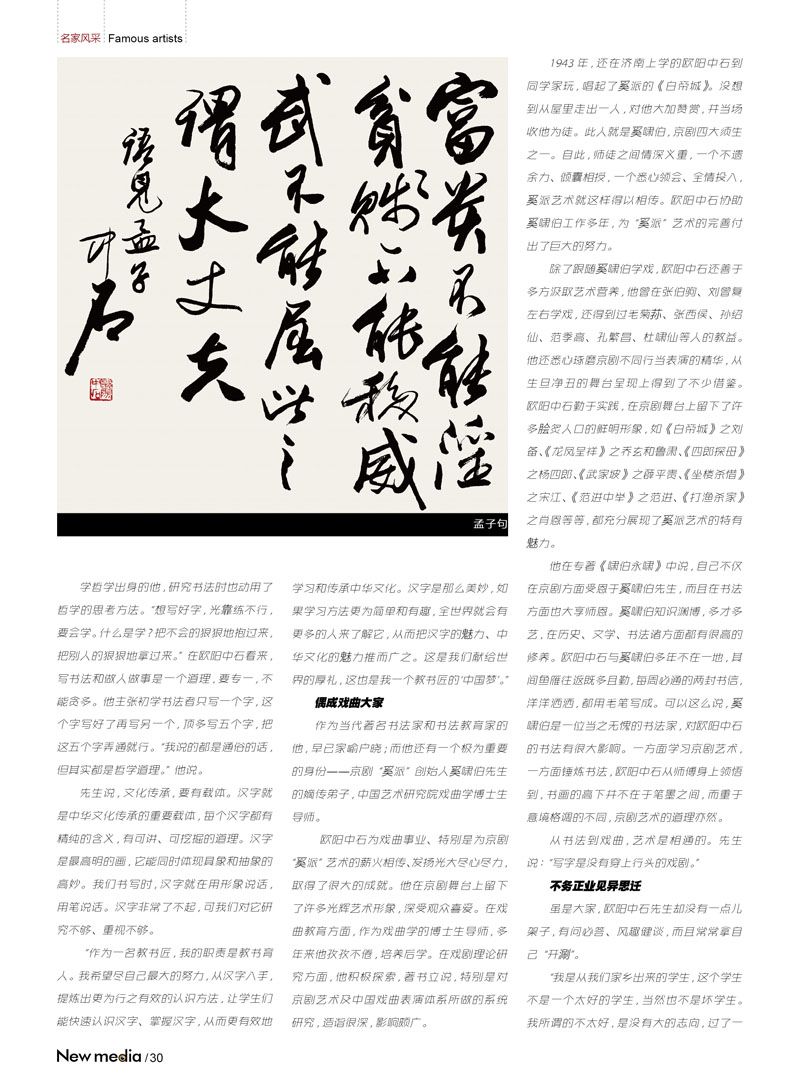 名家风采 Famous artists
富貴不能淫
貧賤不能移威
武不能屈此之
謂大丈夫
語見孟子
中石
孟子句
学哲学出身的他，研究书法时也动用了
哲学的思考方法。“想写好字，光靠练不行，
要会学。什么是学？把不会的狠狠地抱过来，
把别人的狠狠地拿过来。”在欧阳中石看来，
写书法和做人做事是一个道理，要专一，不
能贪多。他主张初学书法者只写一个字，这
个字写好了再写另一个，顶多写五个字，把
这五个字弄通就行。“我说的都是通俗的话，
但其实都是哲学道理。”他说。
先生说，文化传承，要有载体。汉字就
是中华文化传承的重要载体，每个汉字都有
精纯的含义，有可讲、可挖掘的道理。汉字
是最高明的画，它能同时体现具象和抽象的
高妙。我们书写时，汉字就在用形象说话，
用笔说话。汉字非常了不起，可我们对它研
究不够、重视不够。
“作为一名教书匠，我的职责是教书育
人。我希望尽自己最大的努力，从汉字入手，
提炼出更为行之有效的认识方法，让学生们
能快速认识汉字、掌握汉字，从而更有效地
学习和传承中华文化。汉字是那么美妙，如
果学习方法更为简单和有趣，全世界就会有
更多的人来了解它，从而把汉字的魅力、中
华文化的魅力推而广之。这是我们献给世
界的厚礼，这也是我一个教书匠的‘中国梦’。”
偶成戏曲大家
作为当代著名书法家和书法教育家的
他，早已家喻户晓；而他还有一个极为重要
的身份——京剧“奚派”创始人奚啸伯先生
的嫡传弟子，中国艺术研究院戏曲学博士生
导师。
欧阳中石为戏曲事业、特别是为京剧
“奚派”艺术的薪火相传、发扬光大尽心尽力，
取得了很大的成就。他在京剧舞台上留下
了许多光辉艺术形象，深受观众喜爱。在戏
曲教育方面，作为戏曲学的博士生导师，多
年来他孜孜不倦，培养后学。在戏剧理论研
究方面，他积极探索，著书立说，特别是对
京剧艺术及中国戏曲表演体系所做的系统
研究，造诣很深，影响颇广。
1943年，还在济南上学的欧阳中石到
同学家玩，唱起了奚派的《白帝城》。没想
到从屋里走出一人，对他大加赞赏，并当场
收他为徒。此人就是奚啸伯，京剧四大须生
之一。自此，师徒之间情深义重，一个不遗
余力、倾囊相授，一个悉心领会、全情投入，
奚派艺术就这样得以相传。欧阳中石协助
奚啸伯工作多年，为“奚派”艺术的完善付
出了巨大的努力。
除了跟随奚啸伯学戏，欧阳中石还善于
多方汲取艺术营养，他曾在张伯驹、刘曾复
左右学戏，还得到过毛菊荪、张西侯、孙绍
仙、范季高、孔繁昌、杜啸仙等人的教益。
他还悉心琢磨京剧不同行当表演的精华，从
生旦净丑的舞台呈现上得到了不少借鉴。
欧阳中石勤于实践，在京剧舞台上留下了许
多脍炙人口的鲜明形象，如《白帝城》之刘
备、《龙凤呈祥》之乔玄和鲁肃、《四郎探母》
之杨四郎、《武家坡》之薛平贵、《坐楼杀惜》
之宋江、《范进中举》之范进、《打渔杀家》
之肖恩等等，都充分展现了奚派艺术的特有
魅力。
他在专著《啸伯永啸》中说，自己不仅
在京剧方面受恩于奚啸伯先生，而且在书法
方面也大享师恩。奚啸伯知识渊博，多才多
艺，在历史、文学、书法诸方面都有很高的
修养。欧阳中石与奚啸伯多年不在一地，其
间鱼雁往返既多且勤，每周必通的两封书信，
洋洋洒洒，都用毛笔写成。可以这么说，奚
啸伯是一位当之无愧的书法家，对欧阳中石
的书法有很大影响。一方面学习京剧艺术，
一方面锤炼书法，欧阳中石从师傅身上领悟
到，书画的高下并不在于笔墨之间，而重于
意境格调的不同，京剧艺术的道理亦然。
从书法到戏曲，艺术是相通的。先生
说：“写字是没有穿上行头的戏剧。”
不务正业见异思迁
虽是大家，欧阳中石先生却没有一点儿
架子，有问必答、风趣健谈，而且常常拿自
己“开涮”。
“我是从我们家乡出来的学生，这个学生
不是一个太好的学生，当然也不是坏学生。
我所谓的不太好，是没有大的志向，过了一
New media /30